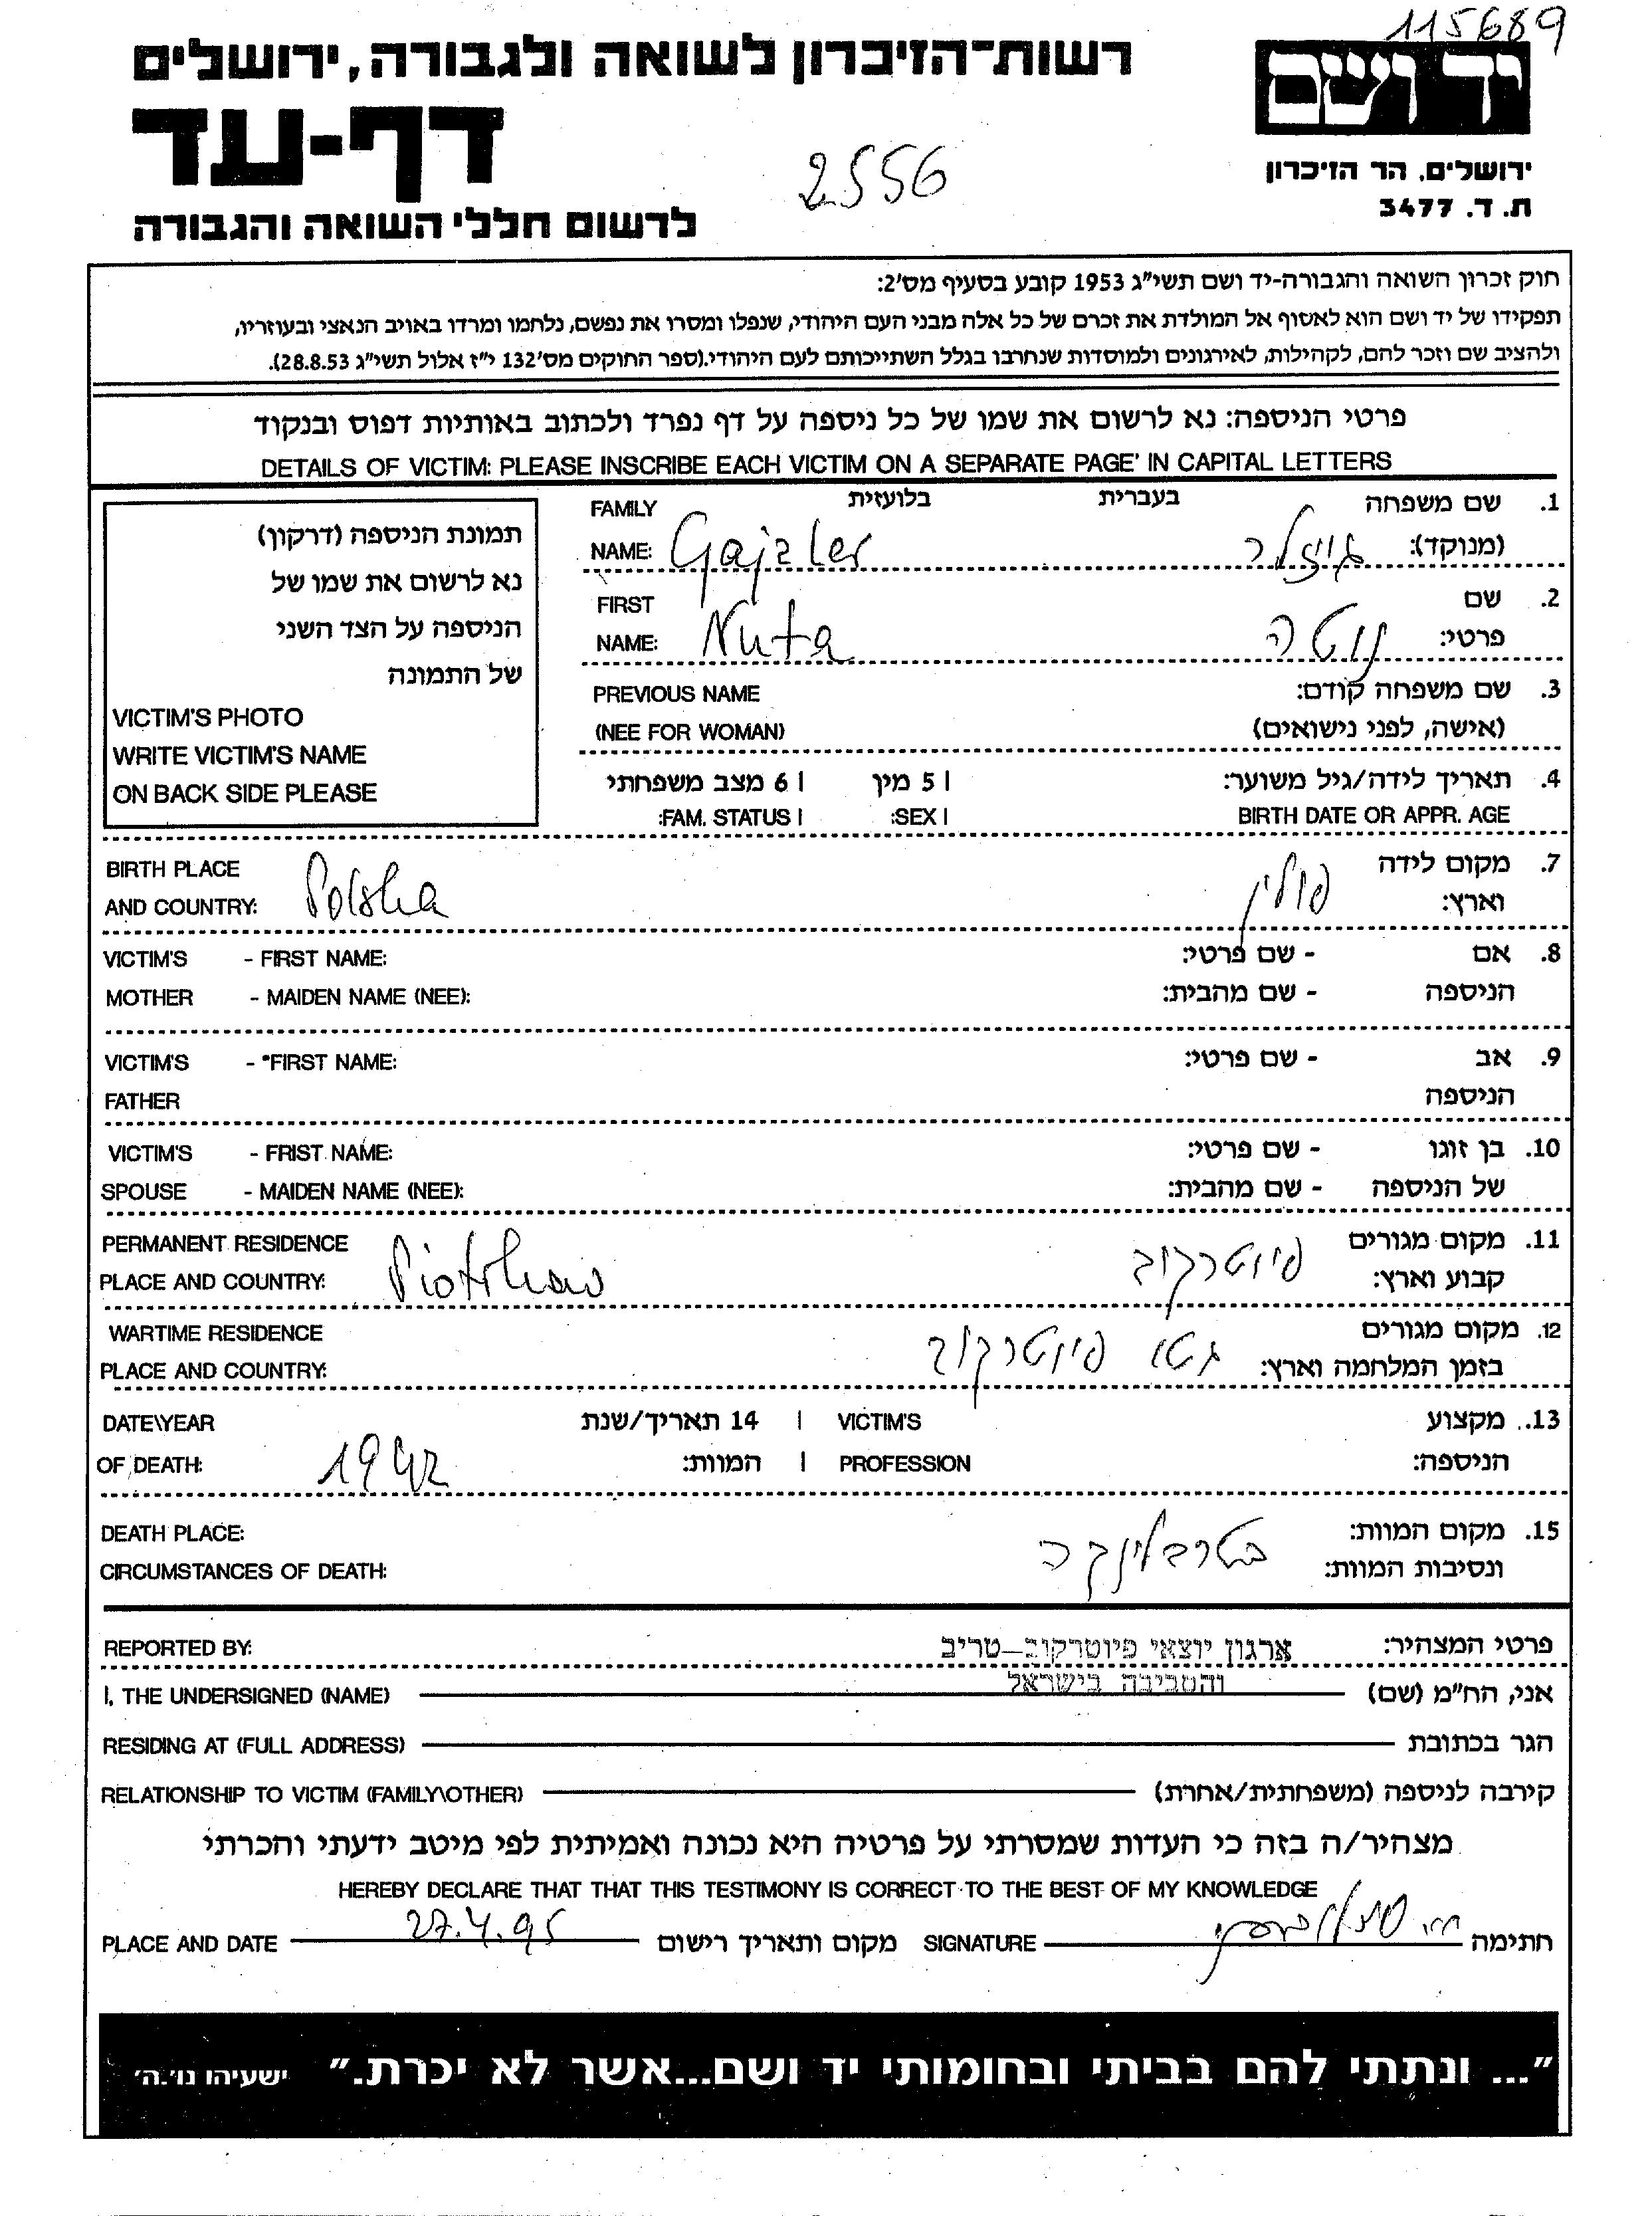 115689
רשות־הזיכרון לשואה ולגבורה, ירושלים
יד ושם
דף-עד
2556
ירושלים, הר הזיכרון
ת. ד. 3477
לרשום חללי השואה והגבורה
חוק זכרון השואה והגבורה-יד ושם תשי"ג 1953 קובע בסעיף מס'2:
תפקידו של יד ושם הוא לאסוף אל המולדת את זכרם של כל אלה מבני העם היהודי, שנפלו ומסרו את נפשם, נלחמו ומרדו באויב הנאצי ובעוזריו,
ולהציב שם וזכר להם, לקהילות, לאירגונים ולמוסדות שנחרבו בגלל השתייכותם לעם היהודי.(ספר החוקים מס'132 י"ז אלול תשי"ג 28.8.53).
פרטי הניספה: נא לרשום את שמו של כל ניספה על דף נפרד ולכתוב באותיות דפוס ובנקוד
DETAILS OF VICTIM: PLEASE INSCRIBE EACH VICTIM ON A SEPARATE PAGE' IN CAPITAL LETTERS
תמונת הניספה (דרקון)
נא לרשום את שמו של
הניספה על הצד השני
של התמונה
VICTIM'S PHOTO
WRITE VICTIM'S NAME
ON BACK SIDE PLEASE
1. שם משפחה בעברית בלועזית FAMILY
(מנוקד): גייזלר Gajzler NAME:
2. שם FIRST
פרטי: נוטה Nuta NAME:
3. שם משפחה קודם: PREVIOUS NAME
(אישה, לפני נישואים) (NEE FOR WOMAN)
4. תאריך לידה/גיל משוער: | 5 מין | 6 מצב משפחתי
BIRTH DATE OR APPR. AGE | SEX: | FAM. STATUS:
7. מקום לידה BIRTH PLACE
וארץ: פולין Polska AND COUNTRY:
8. אם - שם פרטי: VICTIM'S - FIRST NAME:
הניספה - שם מהבית: MOTHER - MAIDEN NAME (NEE):
9. אב - שם פרטי: VICTIM'S - "FIRST NAME:
הניספה FATHER
10. בן זוגו - שם פרטי: VICTIM'S - FRIST NAME:
של הניספה - שם מהבית: SPOUSE - MAIDEN NAME (NEE):
11. מקום מגורים PERMANENT RESIDENCE
קבוע וארץ: פיוטרקוב Piotrkow PLACE AND COUNTRY:
12. מקום מגורים WARTIME RESIDENCE
בזמן המלחמה וארץ: גטו פיוטרקוב PLACE AND COUNTRY:
13. מקצוע VICTIM'S | 14 תאריך/שנת DATE\YEAR
הניספה: PROFESSION | המוות: 1942 OF DEATH:
15. מקום המוות: DEATH PLACE:
ונסיבות המוות: טרבלינקה CIRCUMSTANCES OF DEATH:
פרטי המצהיר: ארגון יוצאי פיוטרקוב–טריב REPORTED BY:
והסביבה בישראל
אני, הח"מ (שם) I, THE UNDERSIGNED (NAME)
הגר בכתובת RESIDING AT (FULL ADDRESS)
קירבה לניספה (משפחתית/אחרת) RELATIONSHIP TO VICTIM (FAMILY\OTHER)
מצהיר/ה בזה כי העדות שמסרתי על פרטיה היא נכונה ואמיתית לפי מיטב ידעתי והכרתי
HEREBY DECLARE THAT THAT THIS TESTIMONY IS CORRECT TO THE BEST OF MY KNOWLEDGE
חתימה SIGNATURE מקום ותאריך רישום 27.4.95 PLACE AND DATE
"... ונתתי להם בביתי ובחומותי יד ושם...אשר לא יכרת." ישעיהו נו'.ה'